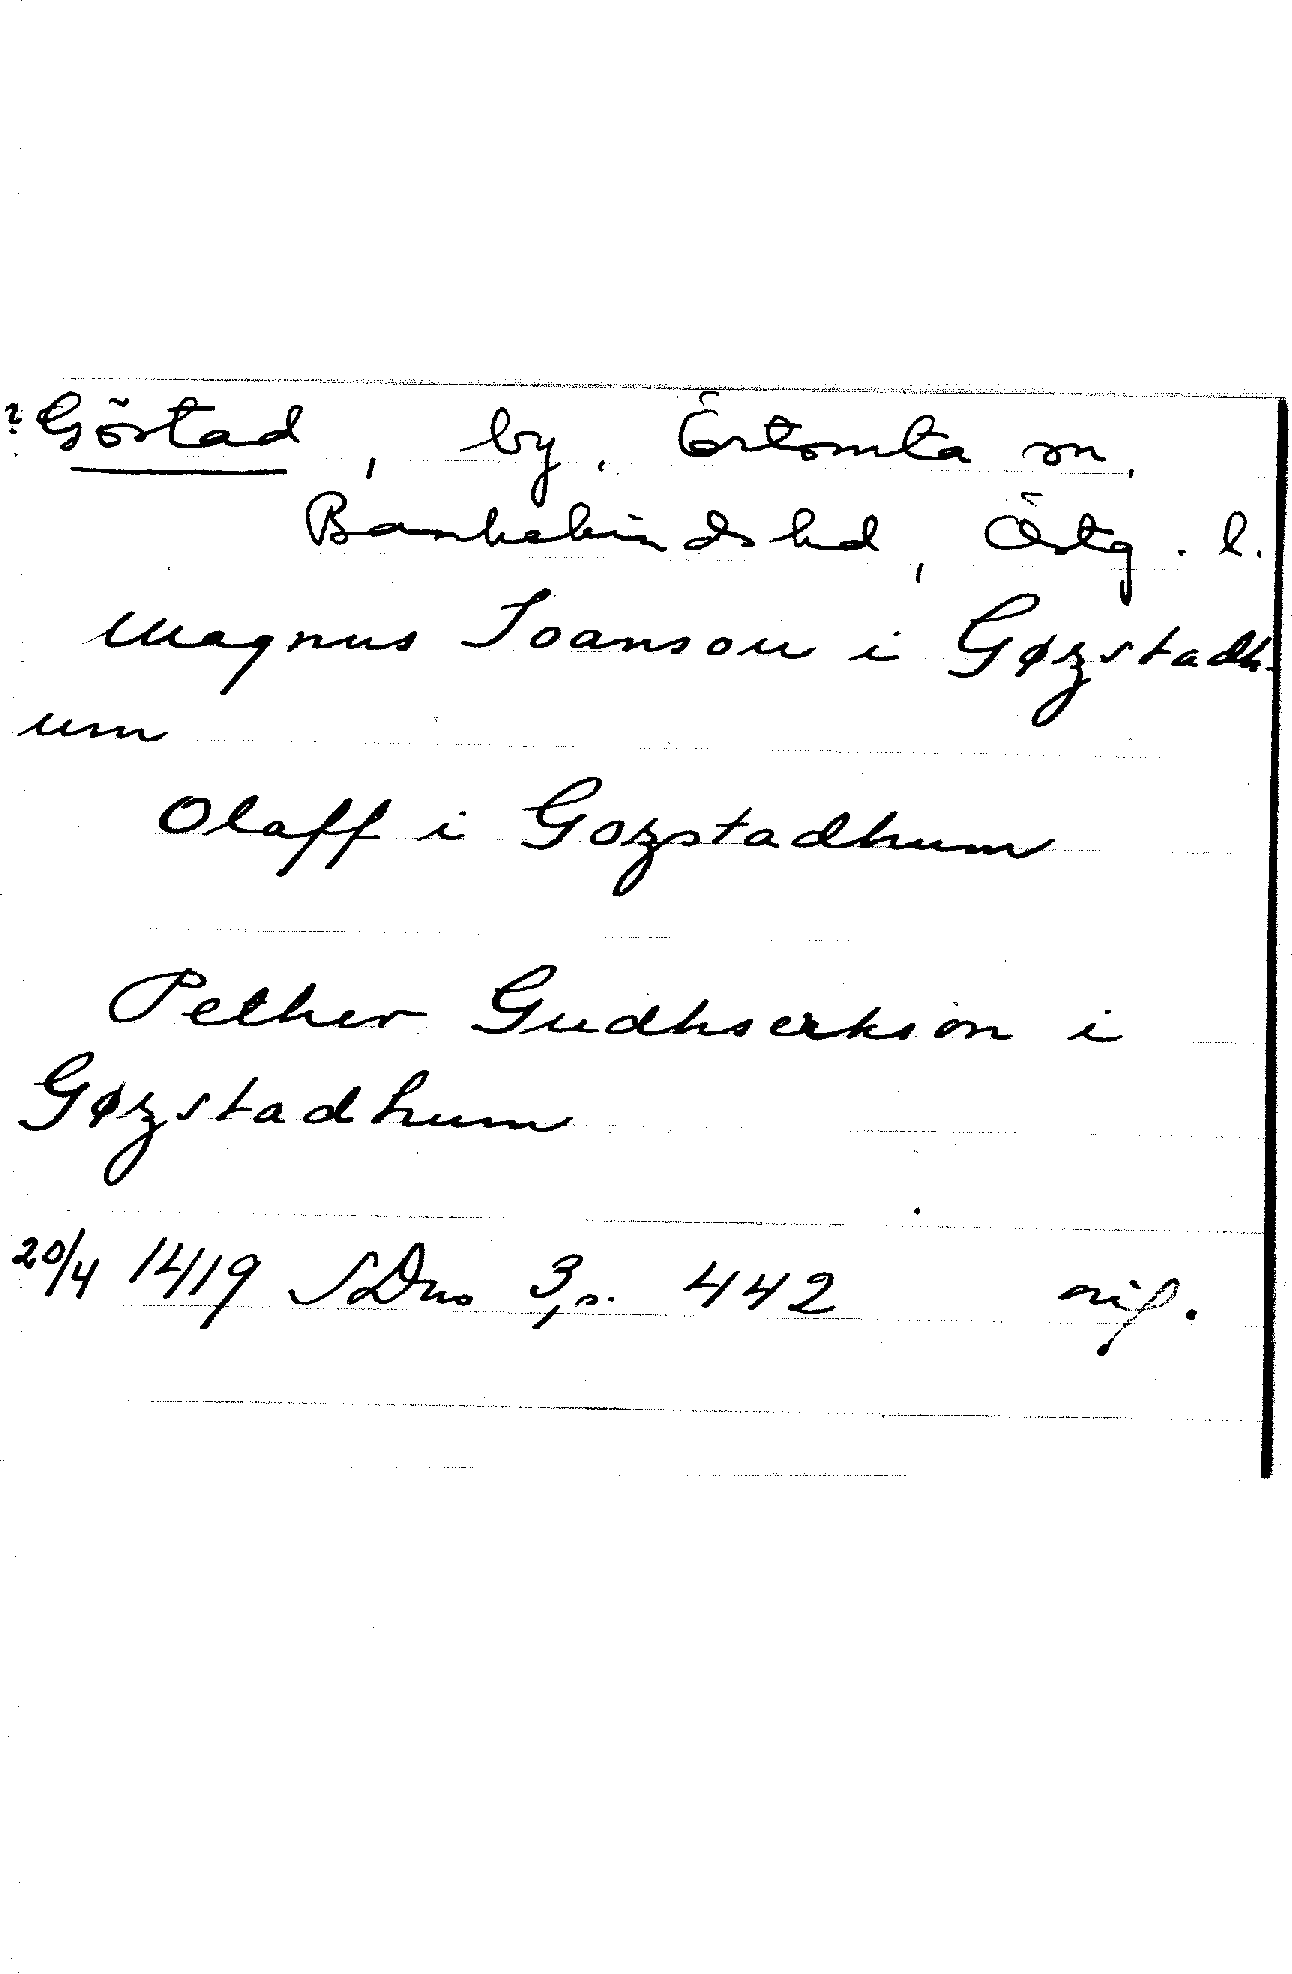 ? Görstad, by, Örtomta sn,
Bankekinds hd, Östg. l.
Magnus Joansson i Gøzstadh-
um
Olaff i Gozstadhum
Pether Gudhserkson i
Gøzstadhum
20/4 1419 SDns 3, s. 442